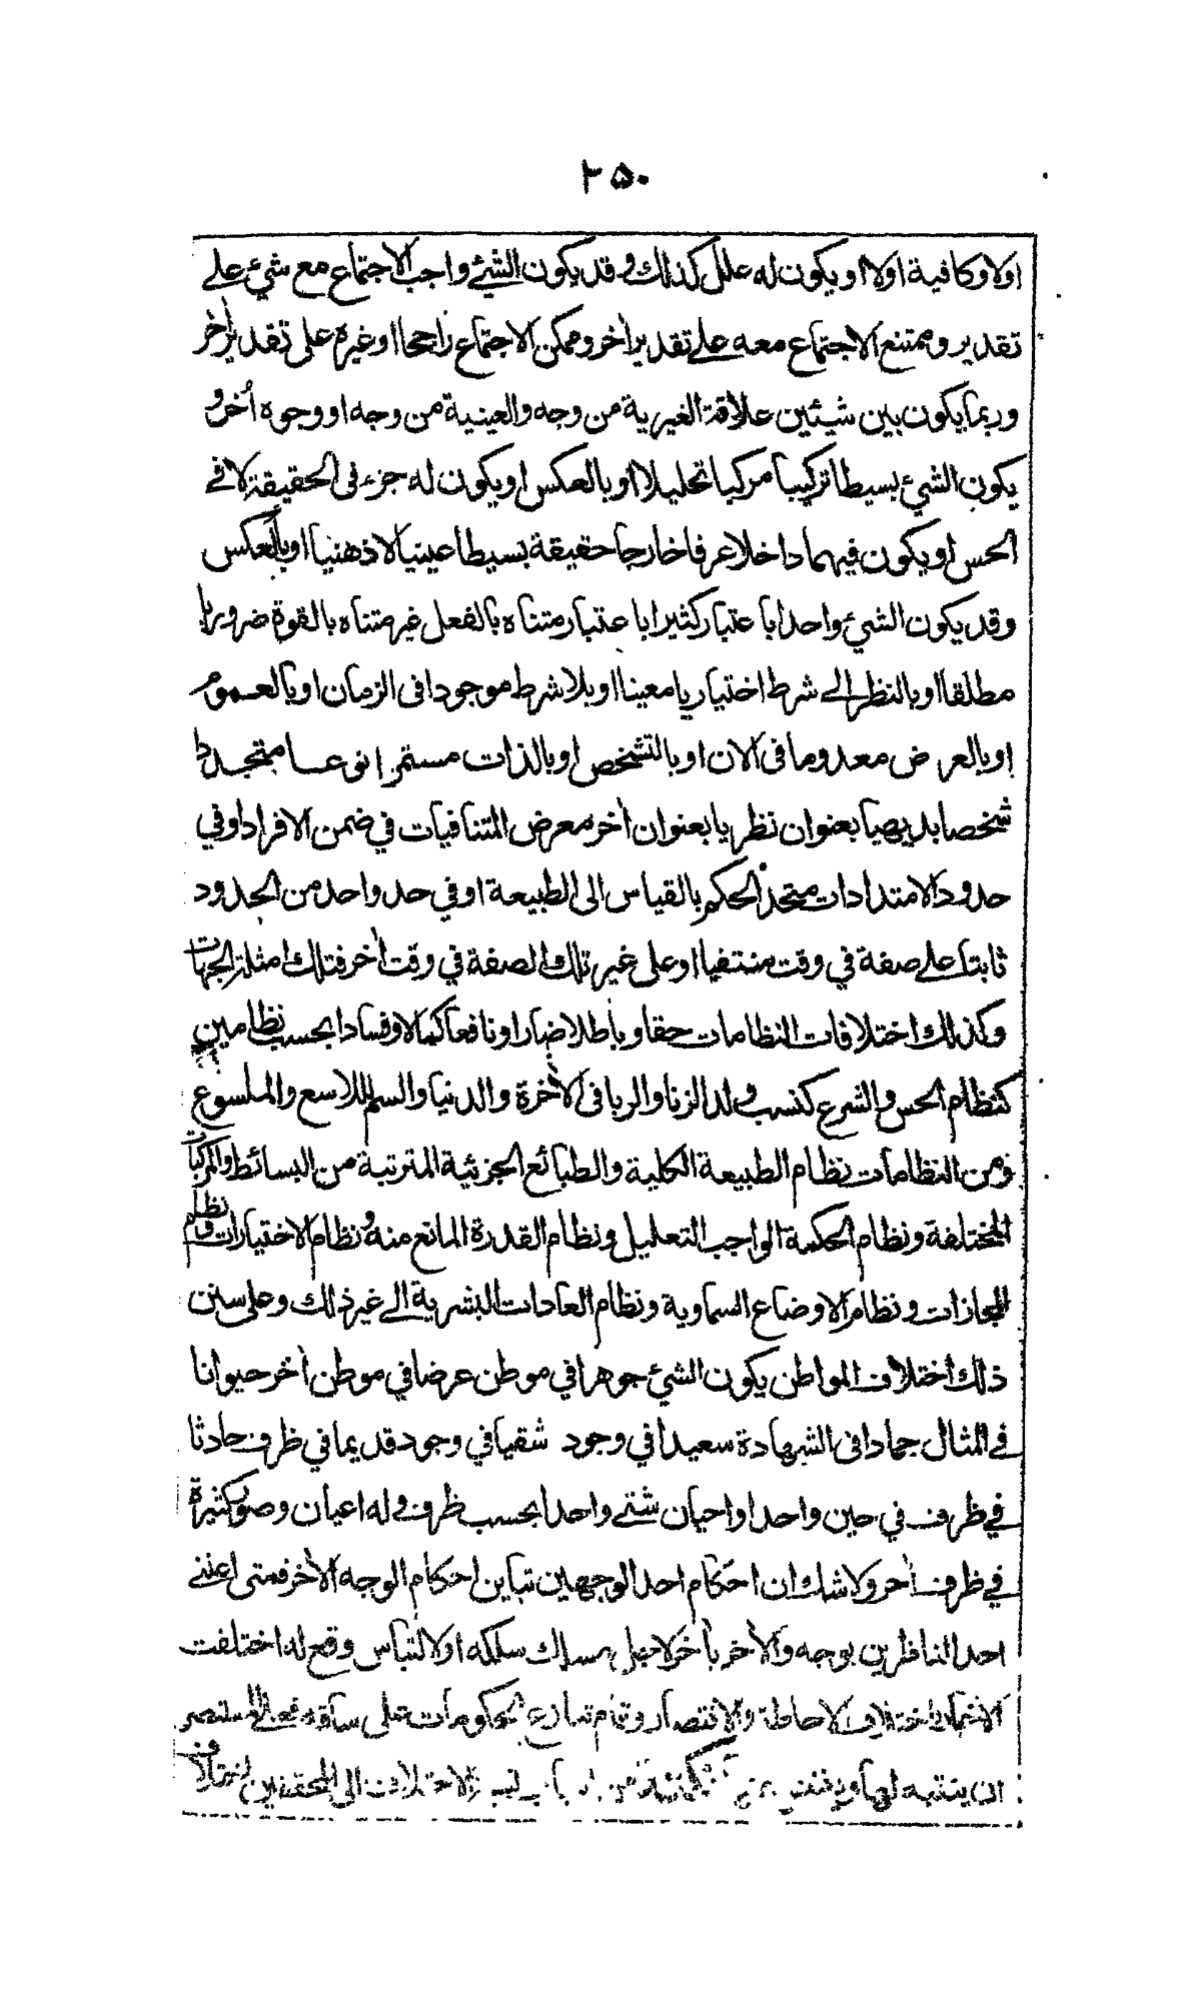 ۲۵۰
اولا وكافية اولا او يكون له علل كذلك و قد يكون الشئ واجب الاجتماع مع شئ على
تقدير وممتنع الاجتماع معه على تقدير أخر وممكن الاجتماع راجحا اوغيره على تقدير أخر
وربما يكون بين شيئين علاقة الغيرية من وجه والعينية من وجه او وجوه أخر و
يكون الشئ بسيطا تركيبا مركبا تحليلا او بالعكس او يكون له جزء فى الحقيقة لا فى
الحس او يكون فيهما داخلا عرفا خارجا حقيقة بسيطا عينيا لا ذهنيا او بالعكس
وقد يكون الشئ واحدا باعتبار كثيرا باعتبار متناه بالفعل غير متناه بالقوة ضروريا
مطلقا او بالنظر الى شرط اختياريا معينا او بلا شرط موجودا فى الزمان او بالعموم
او بالعرض معدوما فى الان او بالتشخص او بالذات مستمرا نوعا متجددا
شخصا بديهيا بعنوان نظريا بعنوان أخر معرض المتنافيات في ضمن الافراد او في
حدود الامتدادات متحد الحكم بالقياس الى الطبيعة او في حد واحد من الحدود
ثابتا على صفة في وقت منتفيا او على غير تلك الصفة في وقت أخر فتلك امثلة الجهات
وكذلك اختلافات النظامات حقا وباطلا ضارا ونافعا كمالا وفسادا بحسب نظامين
كنظام الحس والشرع كنسب ولد الزنا والربا فى الأخرة والدنيا والسم للاسع والملسوع
ومن النظامات نظام الطبيعة الكلية والطبائع الجزئية المترتبة من البسائط والمركبات
المختلفة ونظام الحكمة الواجب التعليل ونظام القدرة المانع منه ونظام الاختيارات ونظام
المجازات ونظام الاوضاع السماوية ونظام العادات البشرية الى غير ذلك وعلى سنن
ذلك اختلاف المواطن يكون الشئ جوهرا في موطن عرضا في موطن أخر حيوانا
في المثال جمادا فى الشهادة سعيدا في وجود شقيا في وجود قديما في ظرف حادثا
في ظرف في حين واحد او احيان شتى واحدا بحسب ظرف وله اعيان وصور كثيرة
في ظرف أخر ولا شك ان احكام احد الوجهين تباين احكام الوجه الأخر فمتى اعتنى
احد الناظرين بوجه والأخر بأخر لا سلكه او لالتباس وقع له اختلفت
الاحاطة والاقتصار على
ان يتنبه لها الى المحققين اختلاف